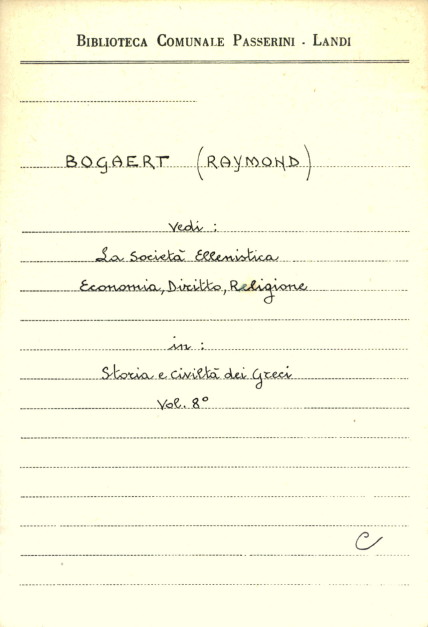 BIBLIOTECA COMUNALE PASSERINI - LANDI
BOGAERT (RAYMOND)
Vedi :
La Società Ellenistica
Economia, Diritto, Religione
in :
Storia e civiltà dei Greci
Vol. 8°
C